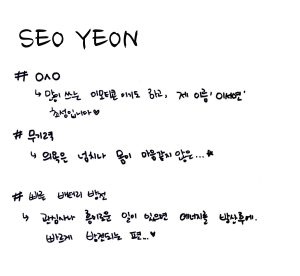 SEO YEON
# ㅇㅅㅇ
↳ 많이 쓰는 이모티콘이기도 하고, 제 이름 '이서연'
초성입니다♥
# 무기력
↳ 의욕은 넘치나 몸이 마음같지 않은...★
# 빠른 배터리 방전
↳ 관심사나 흥미로운 일이 있으면 에너지를 발산후에.
빠르게 방전되는 편...♥